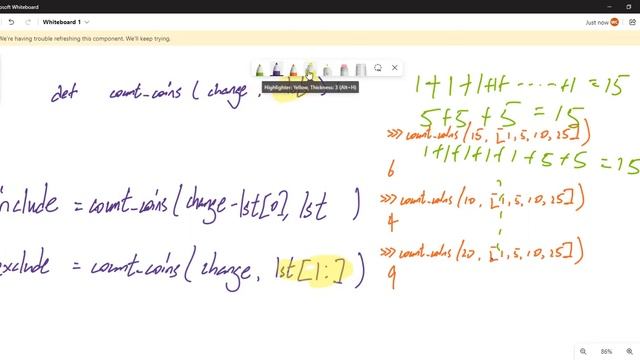 Microsoft Whiteboard
Whiteboard 1
Just now
We're having trouble refreshing this component. We'll keep trying.
Highlighter: Yellow, Thickness: 3 (Alt+H)
def count_coins (change,
1+1+1+1+ ..... +1 = 15
5+5+5 = 15
>>> count_coins (15, [1, 5, 10, 25])
1+1+1+1+1+5+5 = 15
6
include = count_coins (change-lst[0], lst )
>>> count_coins (10, [1, 5, 10, 25])
4
exclude = count_coins (change, lst [1:] )
>>> count_coins (20, [1, 5, 10, 25])
9
86%